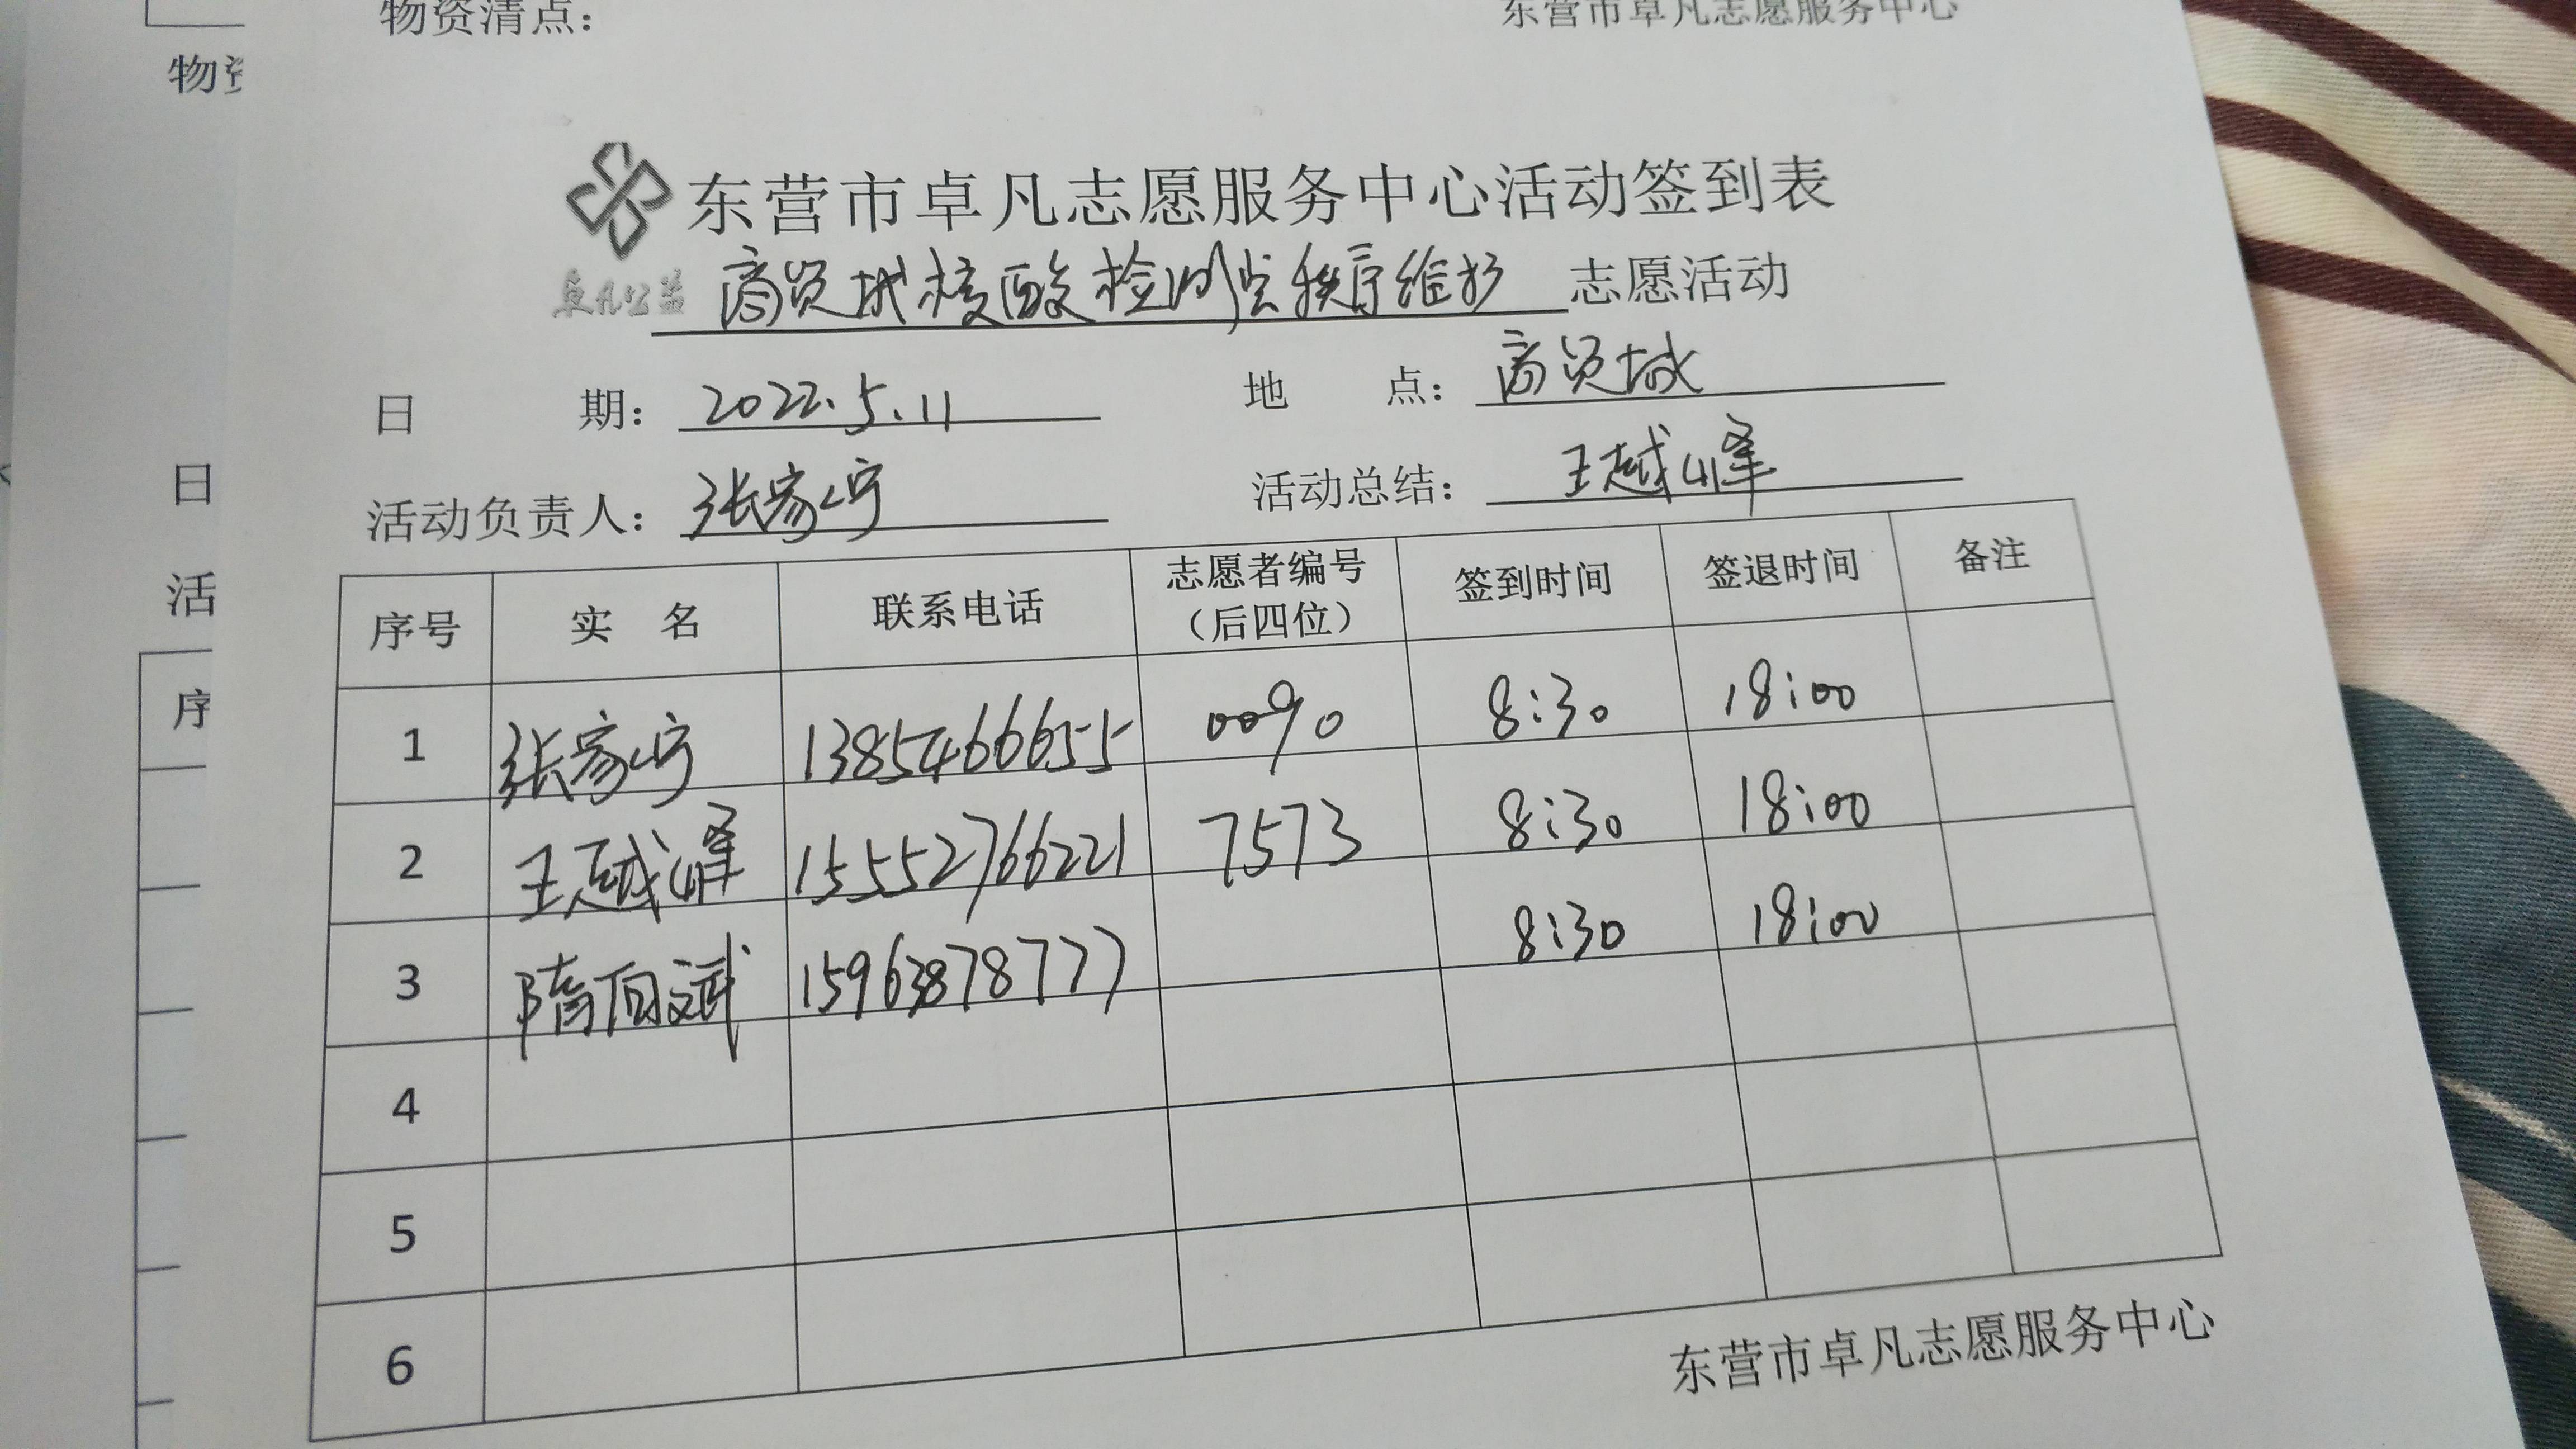 物资清点：
东营市卓凡志愿服务中心
物资
东营市卓凡志愿服务中心活动签到表
卓凡公益
商贸城核酸检测点秩序维护 志愿活动
日 期： 2022.5.11 地 点： 商贸城
活动负责人： 张家宁 活动总结： 王越峰
序号 实 名 联系电话 志愿者编号（后四位） 签到时间 签退时间 备注
1 张家宁 13854666655 0090 8:30 18:00
2 王越峰 15552766221 7573 8:30 18:00
3 隋向斌 15963878777 8:30 18:00
4
5
6
东营市卓凡志愿服务中心
日
活
序